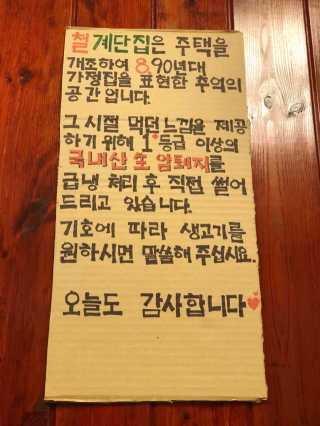 철계단집은 주택을
개조하여 8,90년대
가정집을 표현한 추억의
공간입니다.
그 시절 먹던 느낌을 제공
하기 위해 1+등급 이상의
국내산 초 암퇘지를
급냉 처리 후 직접 썰어
드리고 있습니다.
기호에 따라 생고기를
원하시면 말씀해 주십시요.
오늘도 감사합니다